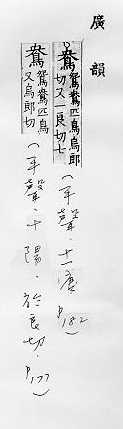 廣韻
鴦 鴛鴦匹鳥烏郎切又一良切七 (平聲.十一唐 P182)
鴦 鴛鴦匹鳥又烏郎切 (平聲.十陽.於良切.P177)